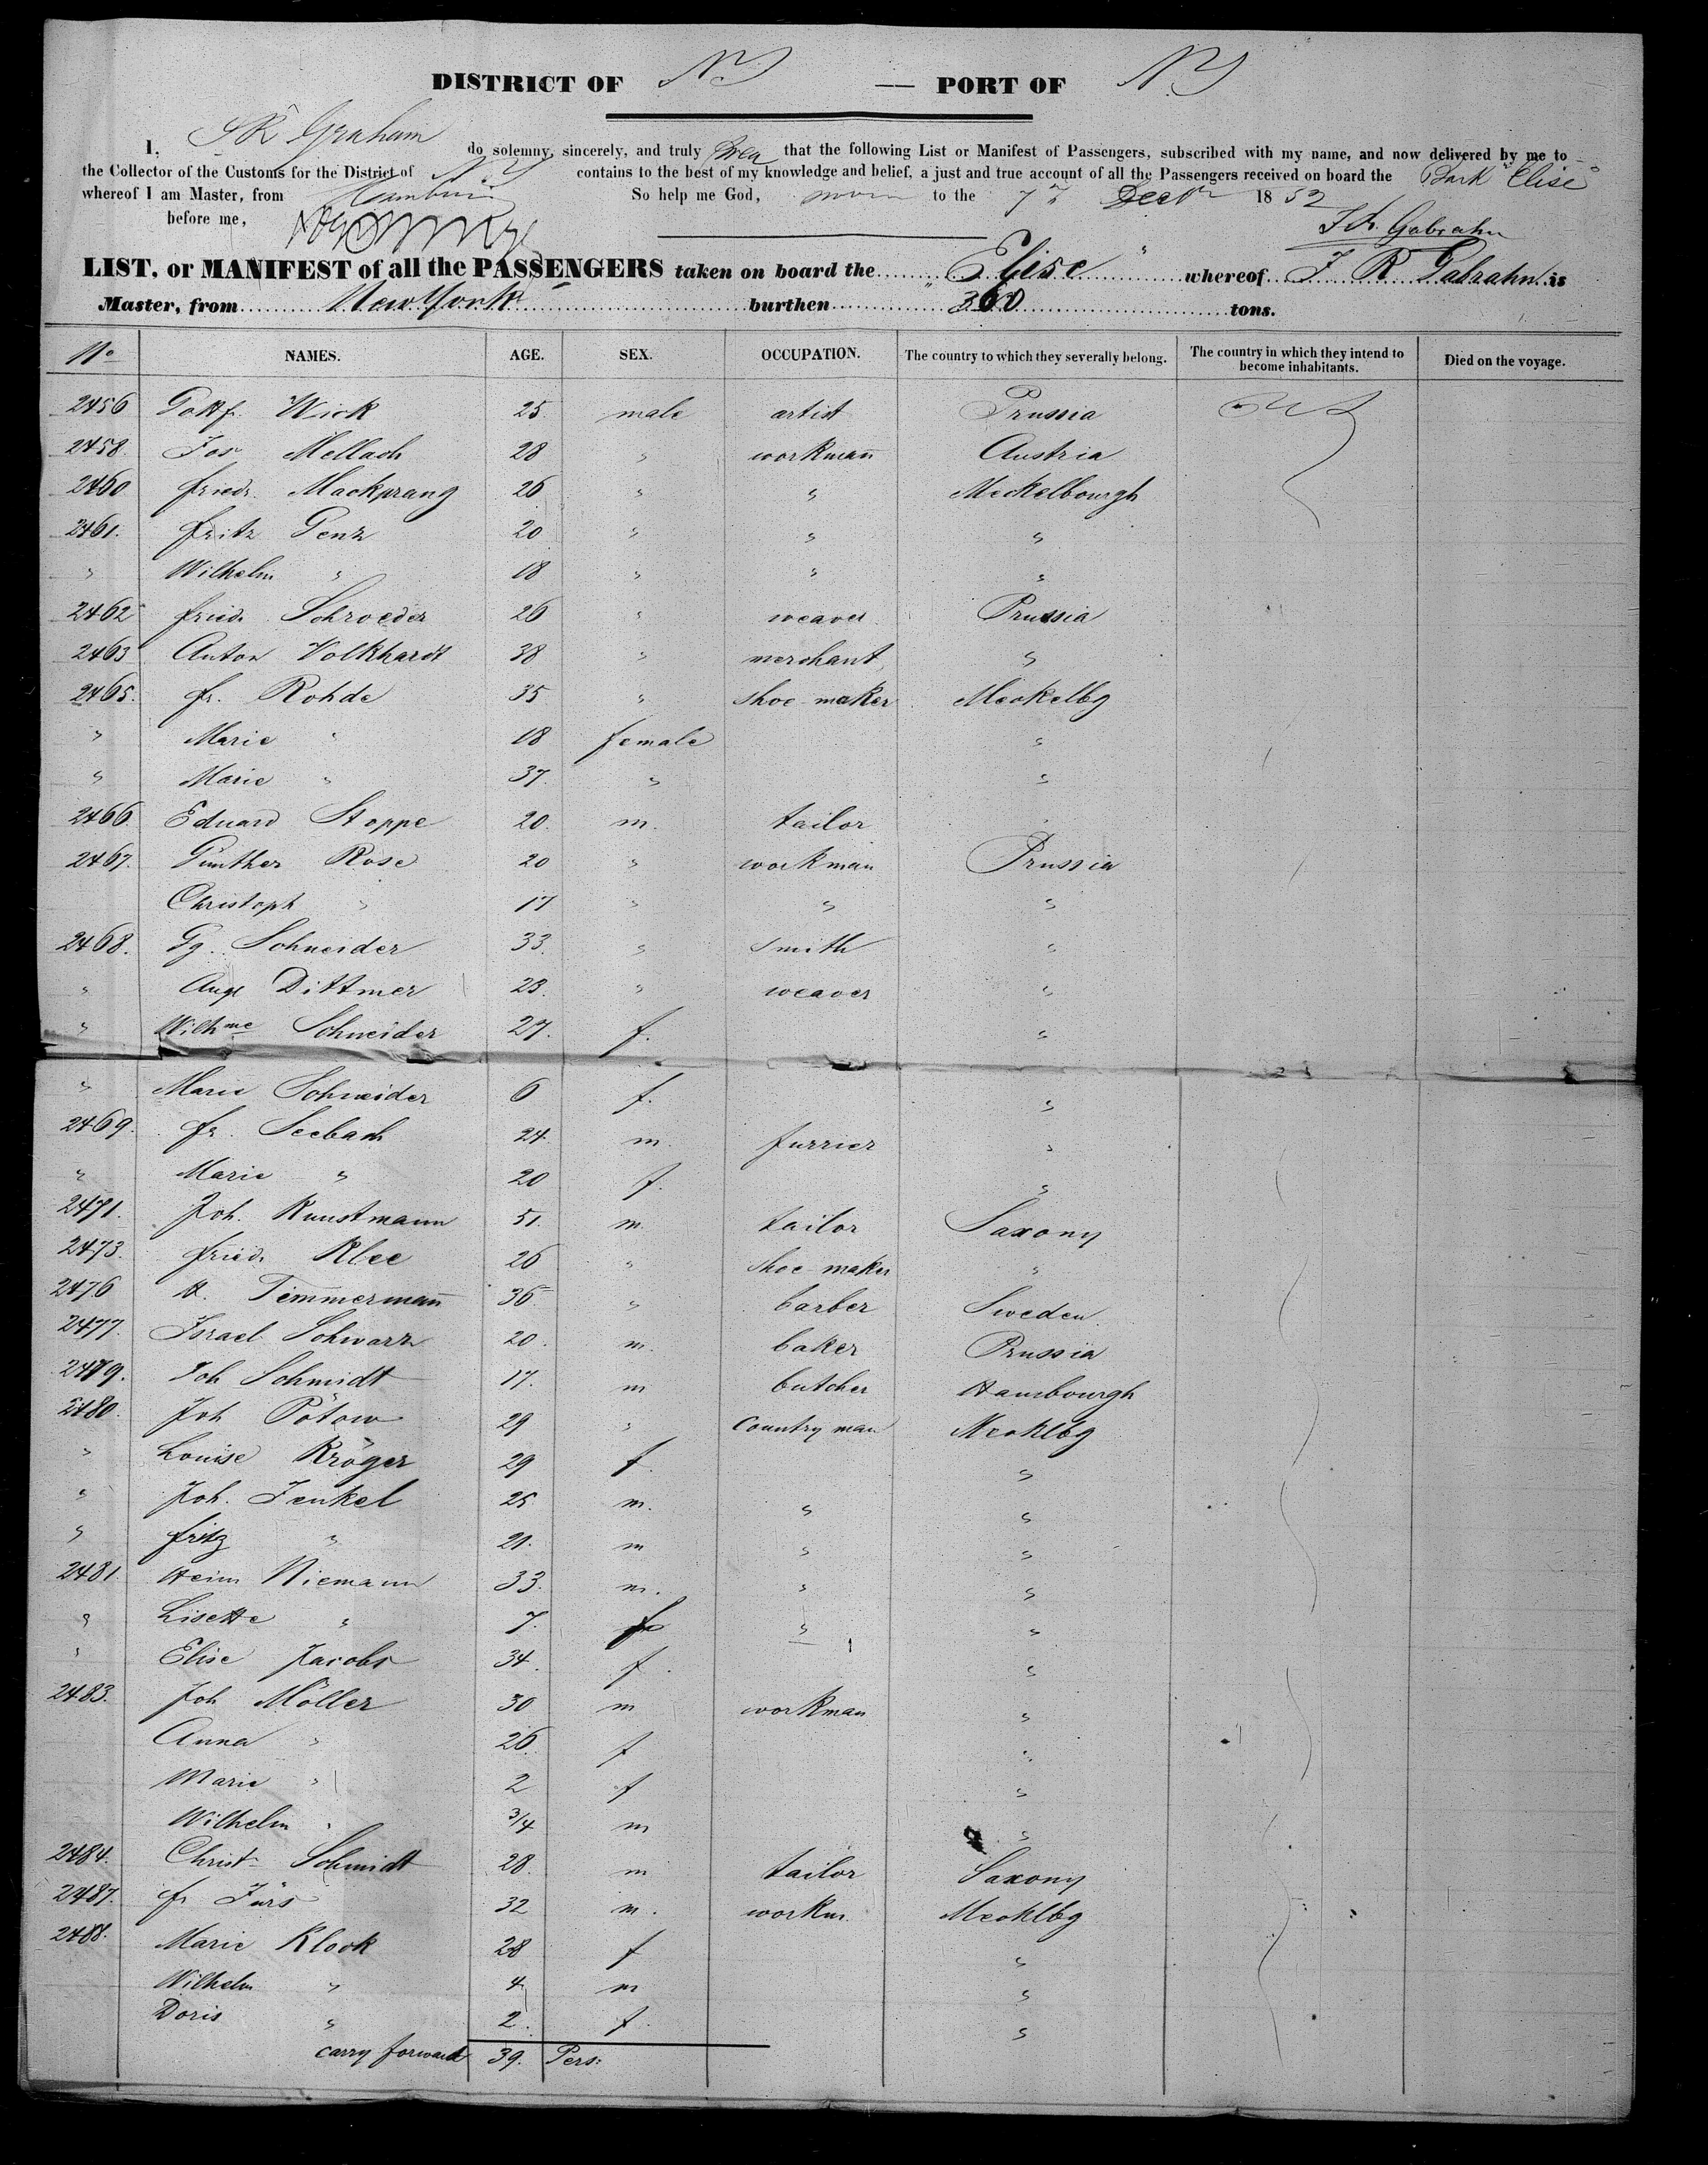 DISTRICT OF NY — PORT OF NY
I, J R Graham do solemny, sincerely, and truly swear that the following List or Manifest of Passengers, subscribed with my name, and now delivered by me to
the Collector of the Customs for the District of N Y contains to the best of my knowledge and belief, a just and true account of all the Passengers received on board the Bark "Elise"
whereof I am Master, from Hamburg So help me God, to the 7th Decbr 1852
before me, J. R. Gabrahn
LIST, or MANIFEST of all the PASSENGERS taken on board the " Elise " whereof J R Gabrahn is
Master, from New York burthen 360 tons.
No NAMES. AGE. SEX. OCCUPATION. The country to which they severally belong. The country in which they intend to become inhabitants. Died on the voyage.
2456 Gottf. Wick 25. male artist Prussia U S
2458. Jos Mellach 28 " workmañ Austria
2460 friedr. Mackprang 26 " " Meckelbourgh
2461. fritz Genz 20 " " "
" Wilhelm " 18 " " "
2462 fried. Schroeder 26 " weaver Prussia
2463 Anton Volkhardt 38 " merchant "
2465. fr. Rohde 35 " shoe maker Meckelbg
" Marie " 18 female "
" Marie " 37. " "
2466. Eduard Stoppe 20. m. tailor "
2467. Gunther Rose 20 " workman Prussia
Christoph " 17 " " "
2468. Gg. Schneider 33. " smith "
" Aug Dittmer 23. " weaver "
" Wilhme Schneider 27. f. "
" Marie Schneider 6 f. "
2469. fr. Seebach 24. m. furrier "
" Marie " 20 f. "
2471. Joh. Kunstmann 51. m. tailor Saxony
2473. fried. Klee 26 " shoe maker "
2476 H. Timmermañ 36. " barber Sweden.
2477. Israel Schwarz 20. m. baker Prussia
2479. Joh Schmidt 17. m butcher Hambourgh
2480. Joh Pötow 29 " country man Mecklbg
" Louise Kröger 29 f. "
" Joh. Jenkel 25 m. " "
" fritz " 21. m " "
2481. Heinr Niemann 33. m. " "
" Lisette " 7. f " "
" Elise Jacobs 34. f. "
2483. Joh Möller 30 m workman "
Anna " 26. f "
Marie " 2 f "
Wilhelm " 3/4 m "
2484. Christ Schmidt 28. m tailor Saxony
2487. fr Jürs 32 m. workm. Mecklbg
2488. Marie Klook 28 f "
Wilhelm " 4 m "
Doris " 2. f. "
carry forward 39. Pers: